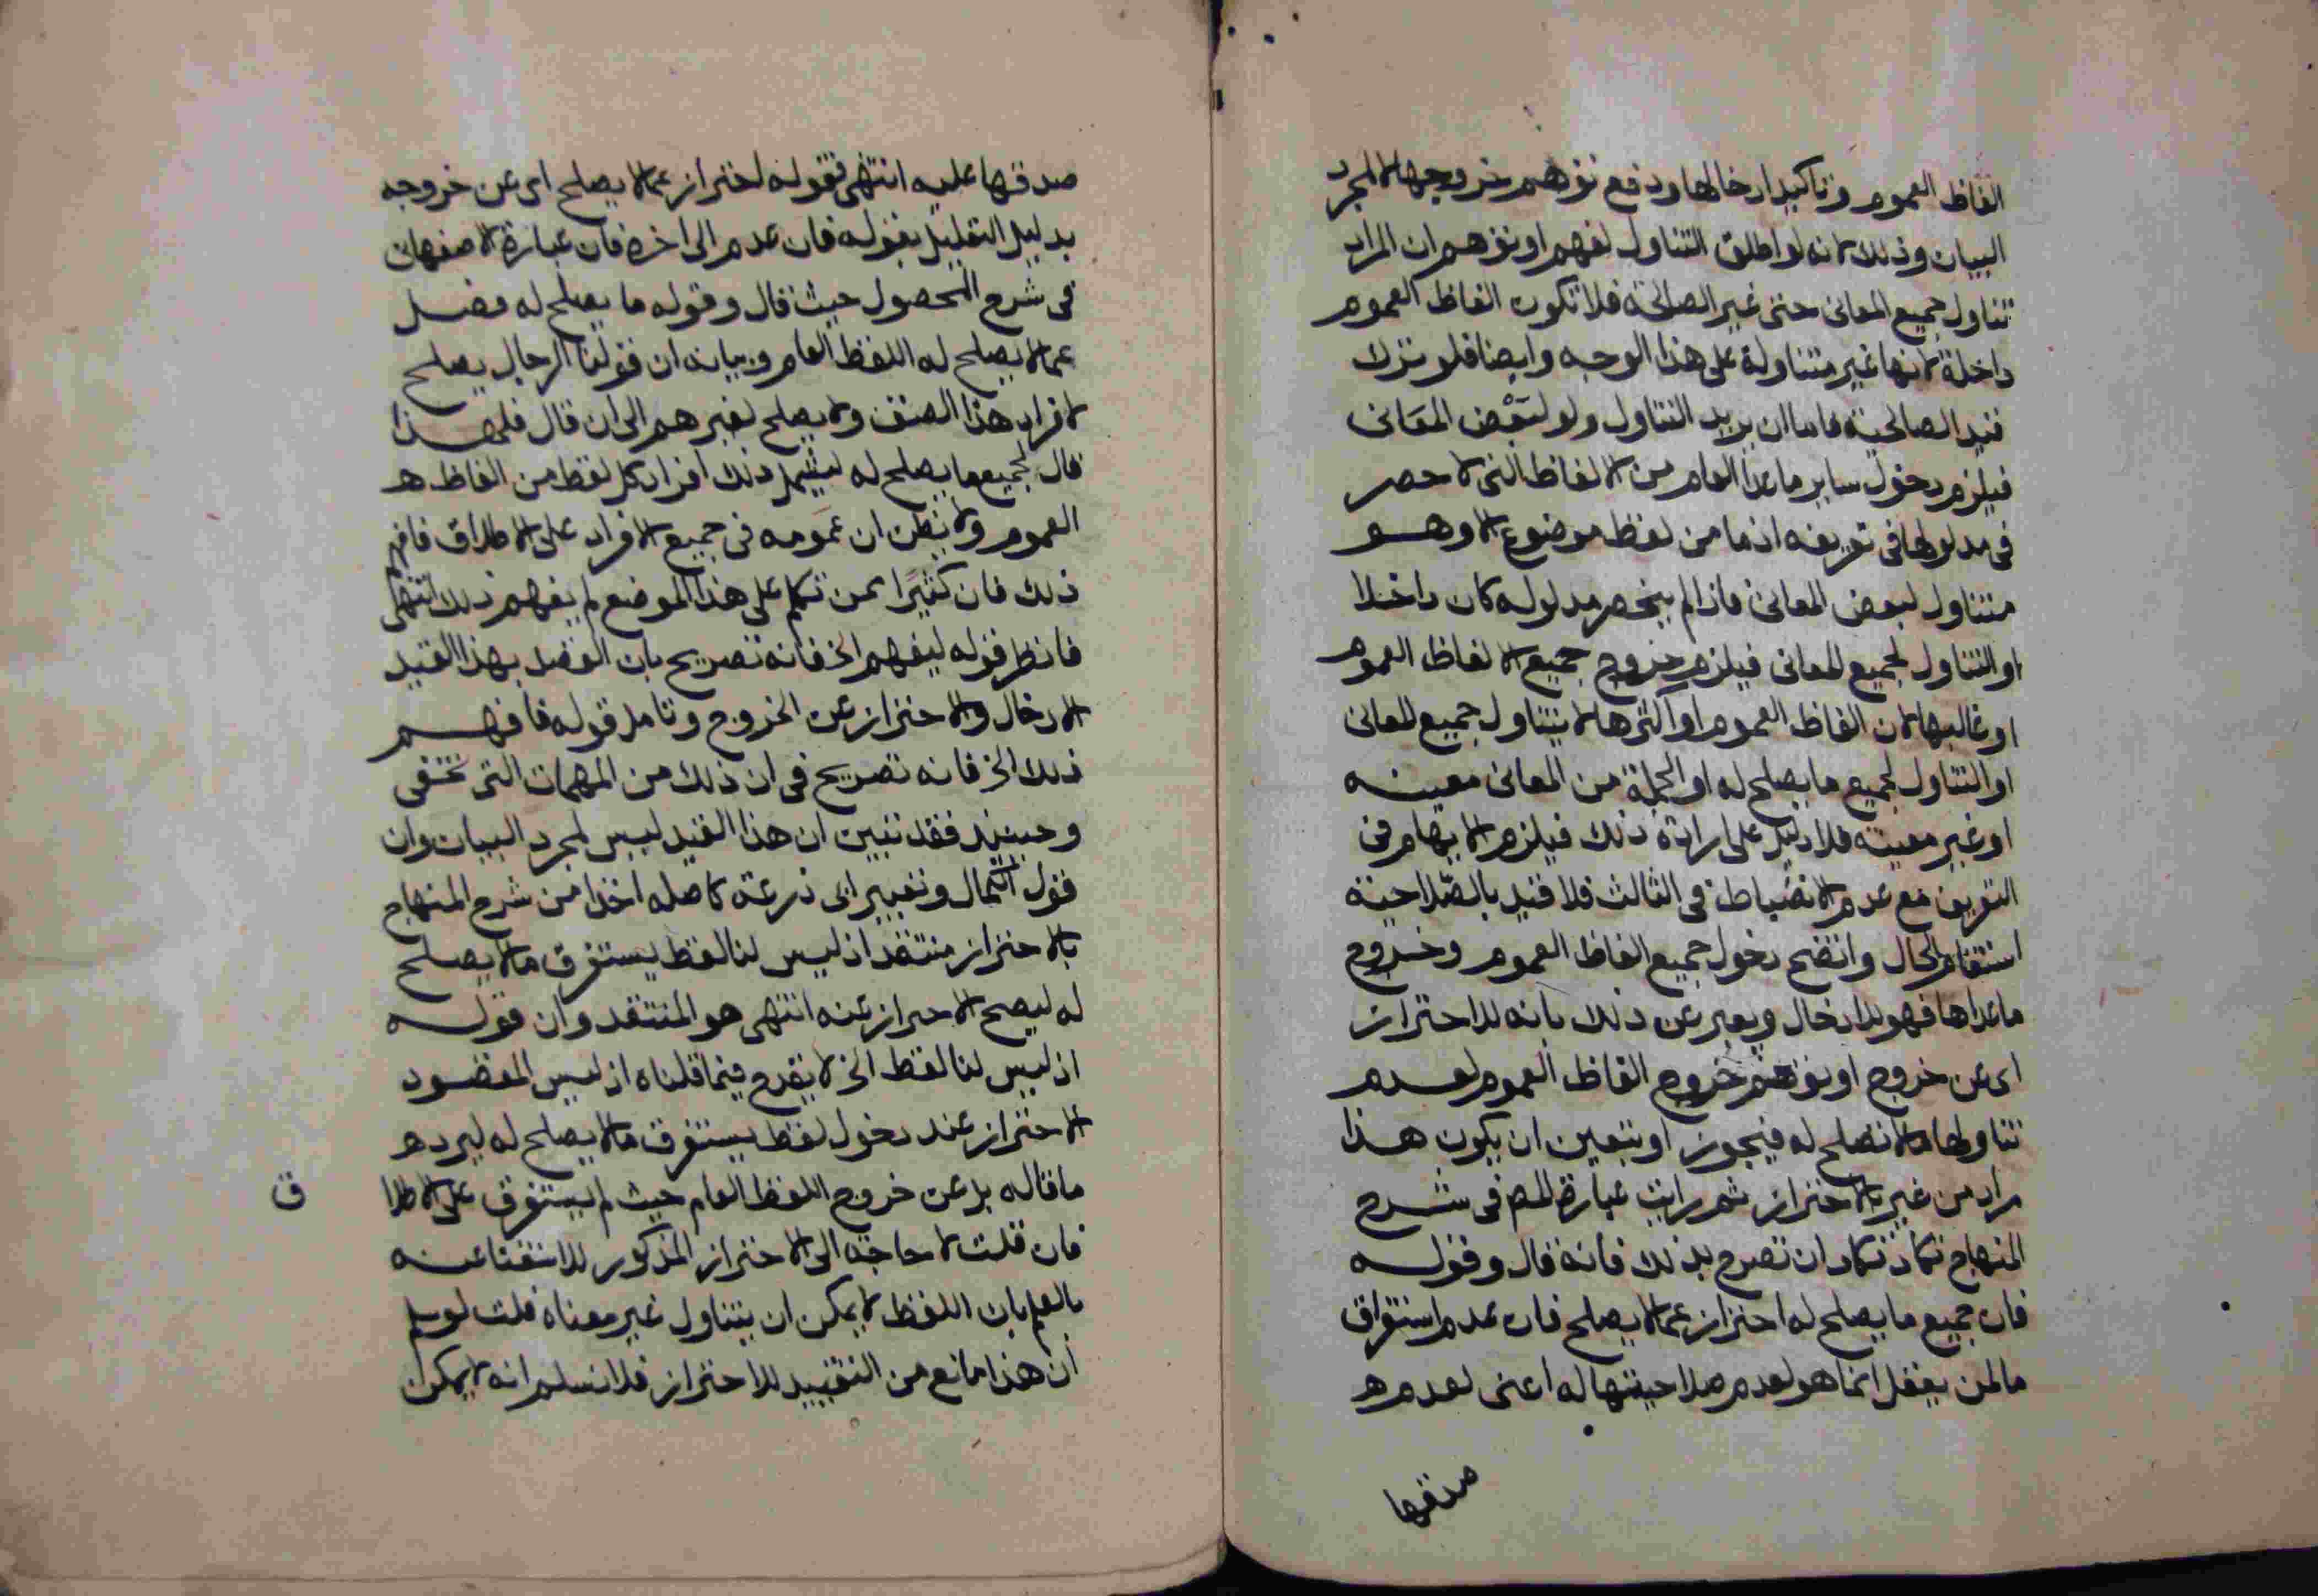 الفاظ العموم وتاكيد ادخالها ودفع توهم خروجها لا لمجرد
البيان وذلك لانه لو اطلق التناول لفهم او توهم ان المراد
تناول جميع المعانى حتى غير الصالحة فلا تكون الفاظ العموم
داخلة لانها غير متناولة على هذا الوجه وايضا فلو ترك
قيد الصالحية فاما ان يريد التناول ولو لبَعْض المعَانى
فيلزم دخول ساير ما عدا العام من الالفاظ التى لا حصر
فى مدلولها فى تعريفه اذ ما من لفظ موضوع الا وهو
متناول لبعض المعانى فاذا لم ينحصر مدلوله كان داخلا
او التناول لجميع المعانى فيلزم خروج جميع الالفاظ العموم
او غالبها لان الفاظ العموم او اكثرها لا يتناول جميع المعانى
او التناول لجميع ما يصلح له او لجملة من المعانى معينه
او غير معينه فلا دليل على ارادة ذلك فيلزم الابهام فى
التعريف مع عدم الانضباط فى الثالث فلا قيد بالصّلاحية
استقام الحال واتضح دخول جميع الفاظ العموم وخروج
ما عداها فهو للادخال ويعبر عن ذلك بانه للاحتراز
اى عن خروج او توهم خروج الفاظ العموم لعدم
تناولها ما لا تصلح له فيجوز او يتعين ان يكون هذا
مراد من عبر بالاحتراز ثم رايت عبارة المص فى شرح
المنهاج تكاد تكاد ان تصرح بذلك فانه قال وقوله
فان جميع ما يصلح له احتراز عما لا يصلح فان عدم استغراق
ما لمن يعقل انما هو لعدم صلاحيتها له اعنى لعدم
صدقها
صدقها عليه انتهى فقوله احتراز عما لا يصلح اى عن خروجه
بدليل التعليل بقوله فان عدم الى اخره فان عبارة الاصفهان
فى شرح المحصول حيث قال وقوله ما يصلح له فصل
عما لا يصلح له اللفظ العام وبيانه ان قولنا الرجال يصلح
لافراد هذا الصنف ولا يصلح لغيرهم الى ان قال فلهذا
قال لجميع ما يصلح له ليشمل ذلك افراد كل لفظ من الفاظ
العموم ولا يظن ان عمومه فى جميع الافراد على الاطلاق فافهم
ذلك فان كثيرًا ممن تكلم على هذا الموضع لم يفهم ذلك انتهى
فانظر قوله ليفهم الخ فانه تصريح بان القصد بهذا القيد
الادخال والاحتراز عن الخروج وتامل قوله فافهم
ذلك الخ فانه تصريح فى ان ذلك من المهمات التى تخفى
وحينيذ فقد تبين ان هذا القيد ليس لمجرد البيان وان
قول الكمال وتعبير ابى ذرعة كاصله اخذا من شرح المنهاج
بالاحتراز منتقد اذ ليس لنا لفظ يستغرق ما لا يصلح
له ليصح الاحتراز عنه انتهى هو المنتقد وان قوله
اذ ليس لنا لفظ الخ لا يقدح فيما قلناه اذ ليس المقصود
الاحتراز عند دخول لفظ يستغرق ما لا يصلح له ليرد
ما قاله بل عن خروج اللفظ العام حيث لم يستغرق على الاطلا
ق
فان قلت لا حاجة الى الاحتراز المذكور للاستغنا عنه
بالعلم بان اللفظ لا يمكن ان يتناول غير معناه قلت لو سلم
ان هذا مانع من التقييد للاحتراز فلا نسلم انه لا يمكن ان